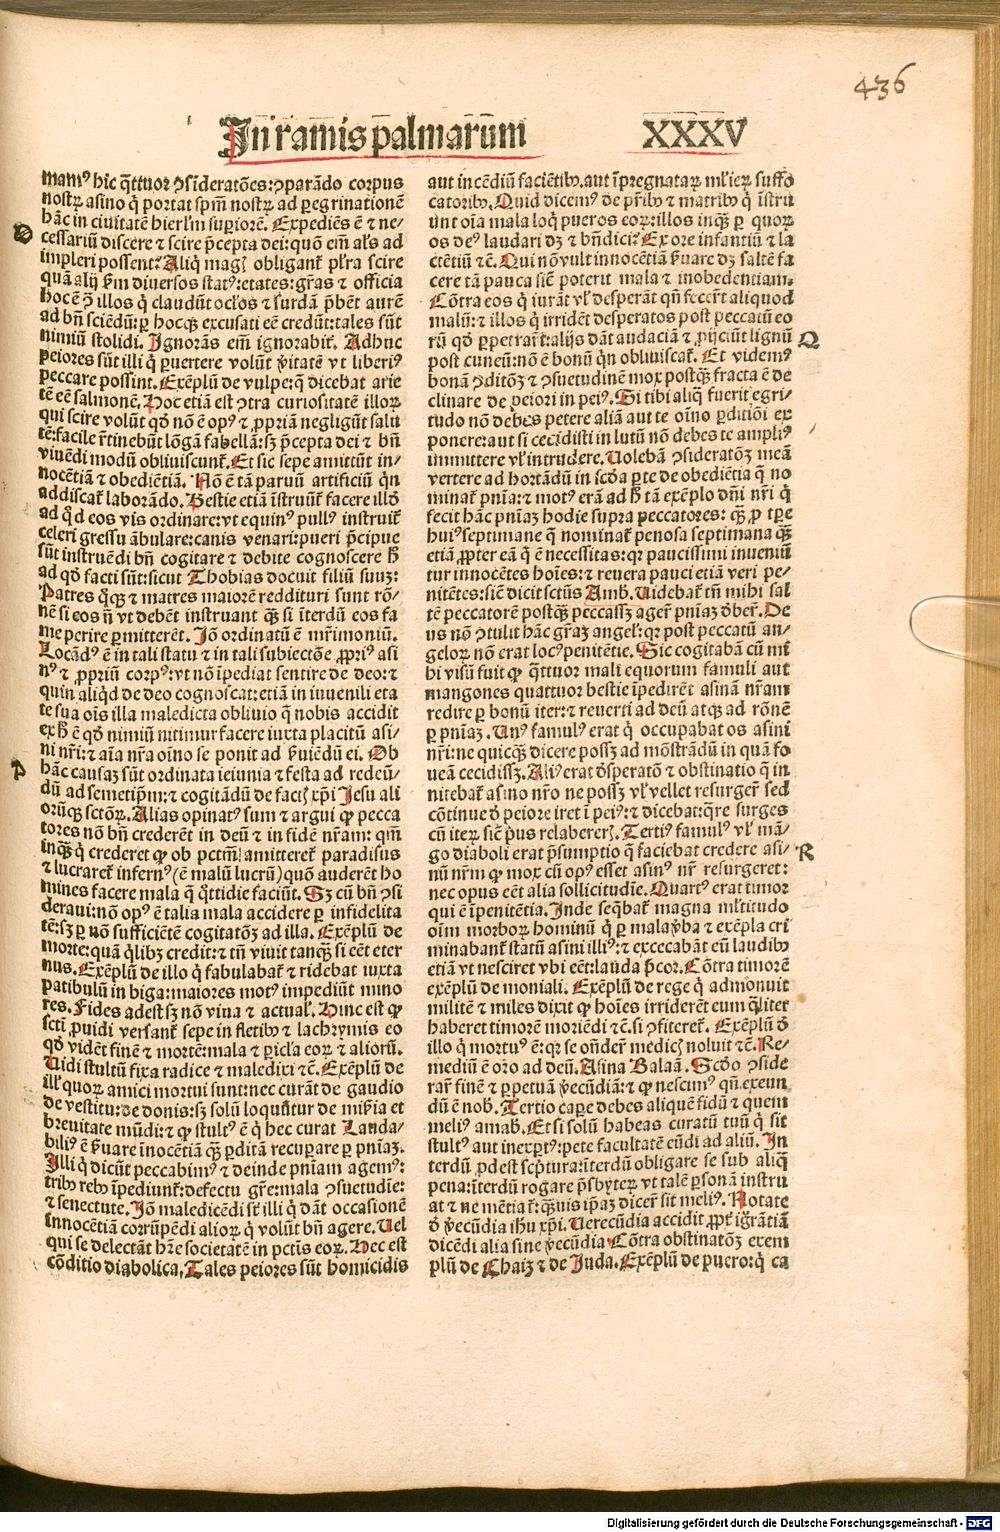 436
In ramis palmarum XXXV
mamꝰ hic q̄ttuor ɔsideratōes: ɔparādo corpus
nostꝝ asino q̄ portat spm̄ nostꝝ ad ꝑegrinationē
hāc in ciuitatē hierl'm suꝑiorē. Expediēs ē ⁊ ne-
O
cessariū discere ⁊ scire p̄cepta dei: quō em̄ al's ad
impleri possent? Aliq̇ mag̃ obligant̄ pl'ra scire
quā alij ẜm diuersos statꝰ: etates: gr̄as ⁊ officia
hoc ē ꝯ illos q̇ claudūt oc'los ⁊ surdā p̄bēt aurē
ad bn̄ sciēdū: ꝑ hocqꝫ excusati eē credūt: tales sūt
nimiū stolidi. Ignorās em̄ ignorabit̄. Adhuc
peiores sūt illi q̇ ꝑuertere volūt v̄itatē vt liberiꝰ
peccare possint. Exēplū de vulpe: q̄ dicebat arie
tē eē salmonē. Hoc etiā est ɔtra curiositatē illoꝝ
qui scire volūt qd̄ nō ē opꝰ ⁊ ꝓpriā negligūt salu
tē: facile r̄tinebūt lōgā fabellā: sꝫ p̄cepta dei ⁊ bn̄
viuēdi modū obliuiscunt̄. Et sic sepe amittūt in-
nocētiā ⁊ obediētiā. Nō ē tā paruū artificiū q̇n
addiscat̄ laborādo. Bestie etiā īstruūt̄ facere illd̄
ad q̇d eos vis ordinare: vt equinꝰ pullꝰ instruit̄
celeri gressu ābulare: canis venari: pueri p̄cipue
sūt instruēdi bn̄ cogitare ⁊ debite cognoscere h̄
ad qd̄ facti sūt: sicut Thobias docuit filiū suuꝫ:
Patres q̇qꝫ ⁊ matres maiorē reddituri sunt rō-
nē si eos n̄ vt debēt instruant qꝫ si īterdū eos fa
me perire ꝑmitterēt. Iō ordinatū ē mr̄imoniū.
Locādꝰ ē in tali statu ⁊ in tali subiectōe ꝓpriꝰ asi
nꝰ ⁊ ꝓpriū corpꝰ: vt nō īpediat sentire de deo: ⁊
quin aliq̇d de deo cognoscat: etiā in iuuenili eta
te sua oīs illa maledicta obliuio q̄ nobis accidit
ex h̄ ē qd̄ nimiū nitimur facere iuxta placitū asi-
ni nr̄i: ⁊ aīa nr̄a oīno se ponit ad s̄uiēdū ei. Ob
P
hāc causaꝫ sūt ordinata ieiunia ⁊ festa ad redeū-
dū ad semetip̄m: ⁊ cogitādū de fact̃ xp̄i Jesu ali
orūqꝫ sctōꝝ. Alias opinatꝰ sum ⁊ argui ꝙ pecca
tores nō bn̄ crederēt in deū ⁊ in fidē nr̄am: qm̄
inqꝫ q̇ crederet ꝙ ob pctm̄ amitteret̄ paradisus
⁊ lucraret̄ infernꝰ (ē malū lucrū) quō auderēt ho
mines facere mala q̄ q̇ttidie faciūt. Sꝫ cū bn̄ ɔsi
deraui: nō opꝰ ē talia mala accidere ꝑ infidelita
tē: sꝫ ꝑ nō sufficiētē cogitatōꝫ ad illa. Exēplū de
morte: quā q̇libꝫ credit: ⁊ tn̄ viuit tanqꝫ si eēt eter
nus. Exēplū de illo q̇ fabulabat̄ ⁊ ridebat iuxta
patibulū in biga: maiores motꝰ impediūt mino
res. Fides adest sꝫ nō viua ⁊ actual'. Hinc est ꝙ
scti ꝓuidi versant̄ sepe in fletibꝰ ⁊ lachrymis eo
qd̄ vidēt finē ⁊ mortē: mala ⁊ ꝑicl'a eoꝝ ⁊ alioru̅.
Uidi stultū fixa radice ⁊ maledixi ⁊c̄. Exēplū de
ill' quoꝝ amici mortui sunt: nec curāt de gaudio
de vestitu: de donis: sꝫ solū loquūtur de mis̄ia et
breuitate mūdi: ⁊ ꝙ stultꝰ ē q̇ hec curat Lauda-
bilꝰ ē s̄uare īnocētiā qꝫ ꝑditā recuꝑare ꝑ pn̄iaꝫ.
Illi q̇ dicūt peccabimꝰ ⁊ deinde pn̄iam agemꝰ:
tribꝰ rebꝰ īpediunt̄: defectu gr̄e: mala ɔsuetudīe:
⁊ senectute. Iō maledicēdi st̄ illi q̇ dāt occasionē
innocētiā corrūpēdi alioꝝ q̇ volūt bn̄ agere. Uel
qui se delectāt h̄re societatē in pctis eoꝝ. Hec est
cōditio diabolica, Tales peiores sūt homicidis
aut incēdiū faciētibꝰ. aut īpregnataꝝ ml'ieꝝ suffo
catoribꝰ. Quid dicemꝰ de pr̄ibꝰ ⁊ matribꝰ q̇ īstru
unt oīa mala loq̇ pueros eoꝝ: illos inqꝫ ꝑ quoꝝ
os deꝰ laudari dꝫ ⁊ bn̄dici? Ex ore infantiū ⁊ la
ctētiū ⁊c̄. Qui nō vult innocētiā s̄uare dꝫ saltē fa
cere tā pauca sic̄ poterit mala ⁊ inobedentiam.
Cōtra eos q̇ iurāt vl' desperāt qn̄ fecer̄t aliquod
malū: ⁊ illos q̇ irridēt desperatos post peccatū eo
rū qd̄ ꝑpetrar̄t: alijs dāt audaciā ⁊ ꝓijciūt lignū
Q
post cuneū: nō ē bonū q̇n obliuiscat̄. Et videmꝰ
bonā ɔditōꝫ ⁊ ɔsuetudinē mox postqꝫ fracta ē de
clinare de peiori in peiꝰ. Si tibi aliq̇ fuerit egri-
tudo nō debes petere aliā aut te oīno ꝑditiōi ex
ponere: aut si cecidisti in lutū nō debes te ampliꝰ
immittere vl' intrudere. Uolebā ɔsideratōꝫ meā
vertere ad hortādū in scd̄a ꝑte de obediētia q̄ no
minat̄ pn̄ia: ⁊ motꝰ erā ad h̄ tā exēplo dn̄i nr̄i q̇
fecit hāc pn̄iaꝫ hodie supra peccatores: qꝫ ꝓ tꝑe
huiꝰ septimane q̄ nominat̄ penosa septimana qꝫ
etiā ꝓpter eā q̄ ē necessitas: qꝛ paucissimi inueniū
tur innocētes hoīes: ⁊ reuera pauci etiā veri pe-
nitētes: sic̄ dicit sctūs Amb. Uidebat̄ tn̄ mihi sal
tē peccatorē postqꝫ peccassꝫ ager̄ pn̄iaꝫ d̄ber̄. De
us nō ɔtulit hāc gr̄aꝫ angel': qꝛ post peccatū an-
geloꝝ nō erat locꝰ penitētie. Sic cogitabā cū mi
hi visū fuit ꝙ q̄ttuor mali equorum famuli aut
mangones quattuor bestie īpedirēt asinā nr̄am
redire ꝑ bonū iter: ⁊ reuerti ad deū atqꝫ ad rōnē
ꝑ pn̄iaꝫ. Unꝰ famulꝰ erat q̇ occupabat os asini
nr̄i: ne quicqꝫ dicere possꝫ ad mōstrādū in quā fo
ueā cecidissꝫ. Aliꝰ erat d̄speratō ⁊ obstinatio q̄ in
nitebat̄ asino nr̄o ne possꝫ vl' vellet resurger̄ sed
cōtinue d̄ peiore iret ī peiꝰ: ⁊ dicebat: q̄re surges
cū iteꝝ sic̄ pꝰus relaberer̃. Tertiꝰ famulꝰ vl' mā-
go diaboli erat p̄sumptio q̄ faciebat credere asi-
R
nū nr̄m ꝙ mox cū opꝰ esset asinꝰ nr̄ resurgeret:
nec opus eēt alia sollicitudīe. Quartꝰ erat timor
qui ē īpenitētia. Inde seq̄bat̄ magna ml'titudo
oīm morboꝝ hominū q̇ ꝑ mala v̄ba ⁊ exēpla cri
minabant̄ statū asini illiꝰ: ⁊ excecabāt eū laudibꝰ
etiā vt nesciret vbi eēt: lauda p̄cor. Cōtra timorē
exēplū de moniali. Exēplū de rege q̇ admonuit
militē ⁊ miles dixit ꝙ hoīes irriderēt eum q̇liter
haberet timorē moriēdi ⁊c̄. si ɔfiteret̄. Exēplū d̄
illo q̇ mortuꝰ ē: qꝛ se on̄der̄ medic̃ noluit ⁊c̄. Re-
mediū ē oro ad deū. Asina Balaā. Scd̄o ɔside
rar̄ finē ⁊ ꝑpetuā v̄ecūdiā: ⁊ ꝙ nescimꝰ qn̄ exeun
dū ē nob̄. Tertio caꝑe debes aliquē fidū ⁊ quem
meliꝰ amab̄. Et si solū habeas curatū tuū q̇ sit
stultꝰ aut inexpertꝰ: pete facultatē eūdi ad aliū. In
terdū ꝓdest scp̄tura: īterdū obligare se sub aliq̇
pena: īterdū rogare p̄sbyteꝝ vt talē ꝑsonā instru
at ⁊ ne mētia t̄: qꝫuis ip̄aꝫ dicer̄ sit meliꝰ. Notate
d̄ v̄ecūdia ihū xp̄i. Uerecūdia accidit ꝓpt̄ igr̄atiā
dicēdi alia sine v̄ecūdia Cōtra obstinatōꝫ exem
plū de Chaiꝫ ⁊ de Juda. Exēplū de puero: q̇ ca
Digitalisierung gefördert durch die Deutsche Forschungsgemeinschaft - DFG